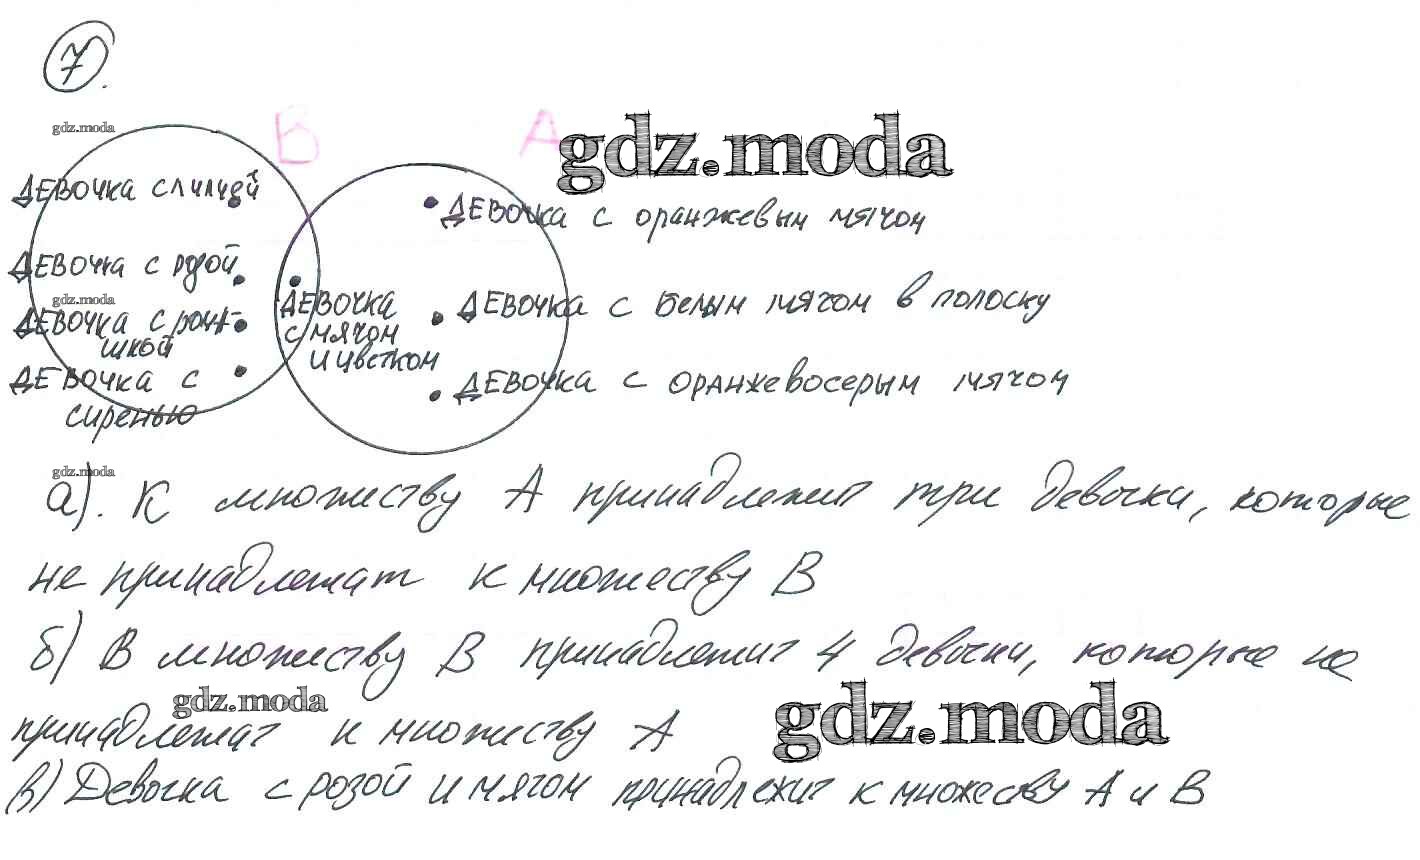 7.
gdz.moda
B
A
gdz.moda
ДЕВОЧКА С ЛИЛИЕЙ
ДЕВОЧКА С ОРАНЖЕВЫМ МЯЧОМ
ДЕВОЧКА С РОЗОЙ
gdz.moda
ДЕВОЧКА С РОМА-
ШКОЙ
ДЕВОЧКА
С МЯЧОМ
И ЦВЕТКОМ
ДЕВОЧКА С БЕЛЫМ МЯЧОМ В ПОЛОСКУ
ДЕВОЧКА С
СИРЕНЬЮ
ДЕВОЧКА С ОРАНЖЕВОСЕРЫМ МЯЧОМ
gdz.moda
а). К множеству А принадлежит три девочки, которые
не принадлежат к множеству В
б) В множеству В принадлежит 4 девочки, которые не
gdz.moda
gdz.moda
принадлежат к множеству А
в) Девочка с розой и мячом принадлежит к множеству А и В